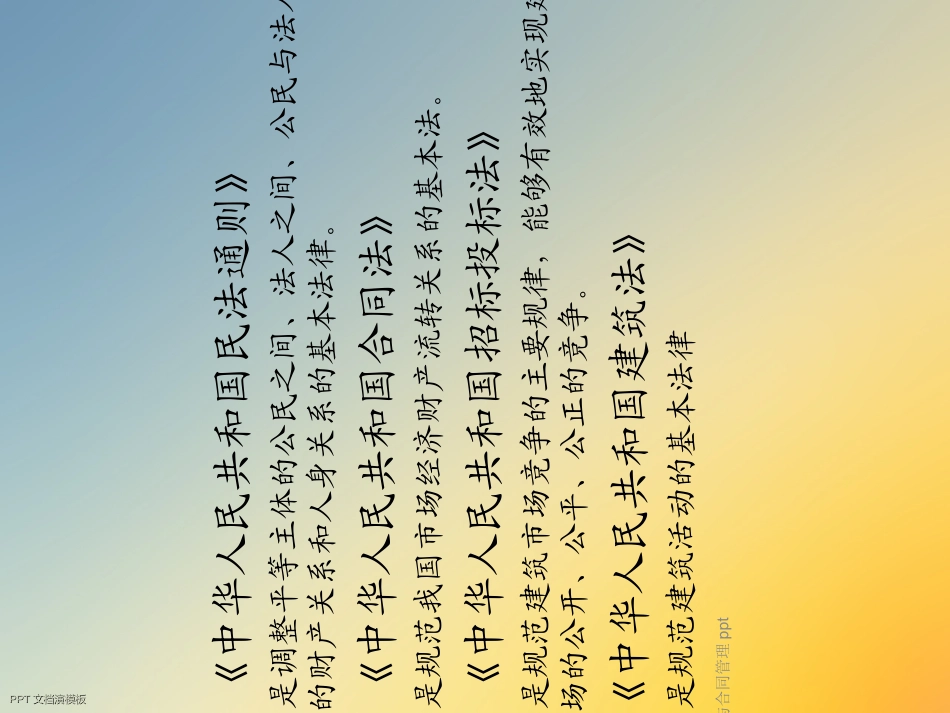 《中华人民共和国民法通则》
是调整平等主体的公民之间、法人之间、公民与法人
的财产关系和人身关系的基本法律。
《中华人民共和国合同法》
是规范我国市场经济财产流转关系的基本法。
《中华人民共和国招标投标法》
是规范建筑市场竞争的主要规律，能够有效地实现建
场的公开、公平、公正的竞争。
《中华人民共和国建筑法》
是规范建筑活动的基本法律
与合同管理ppt
PPT文档演模板